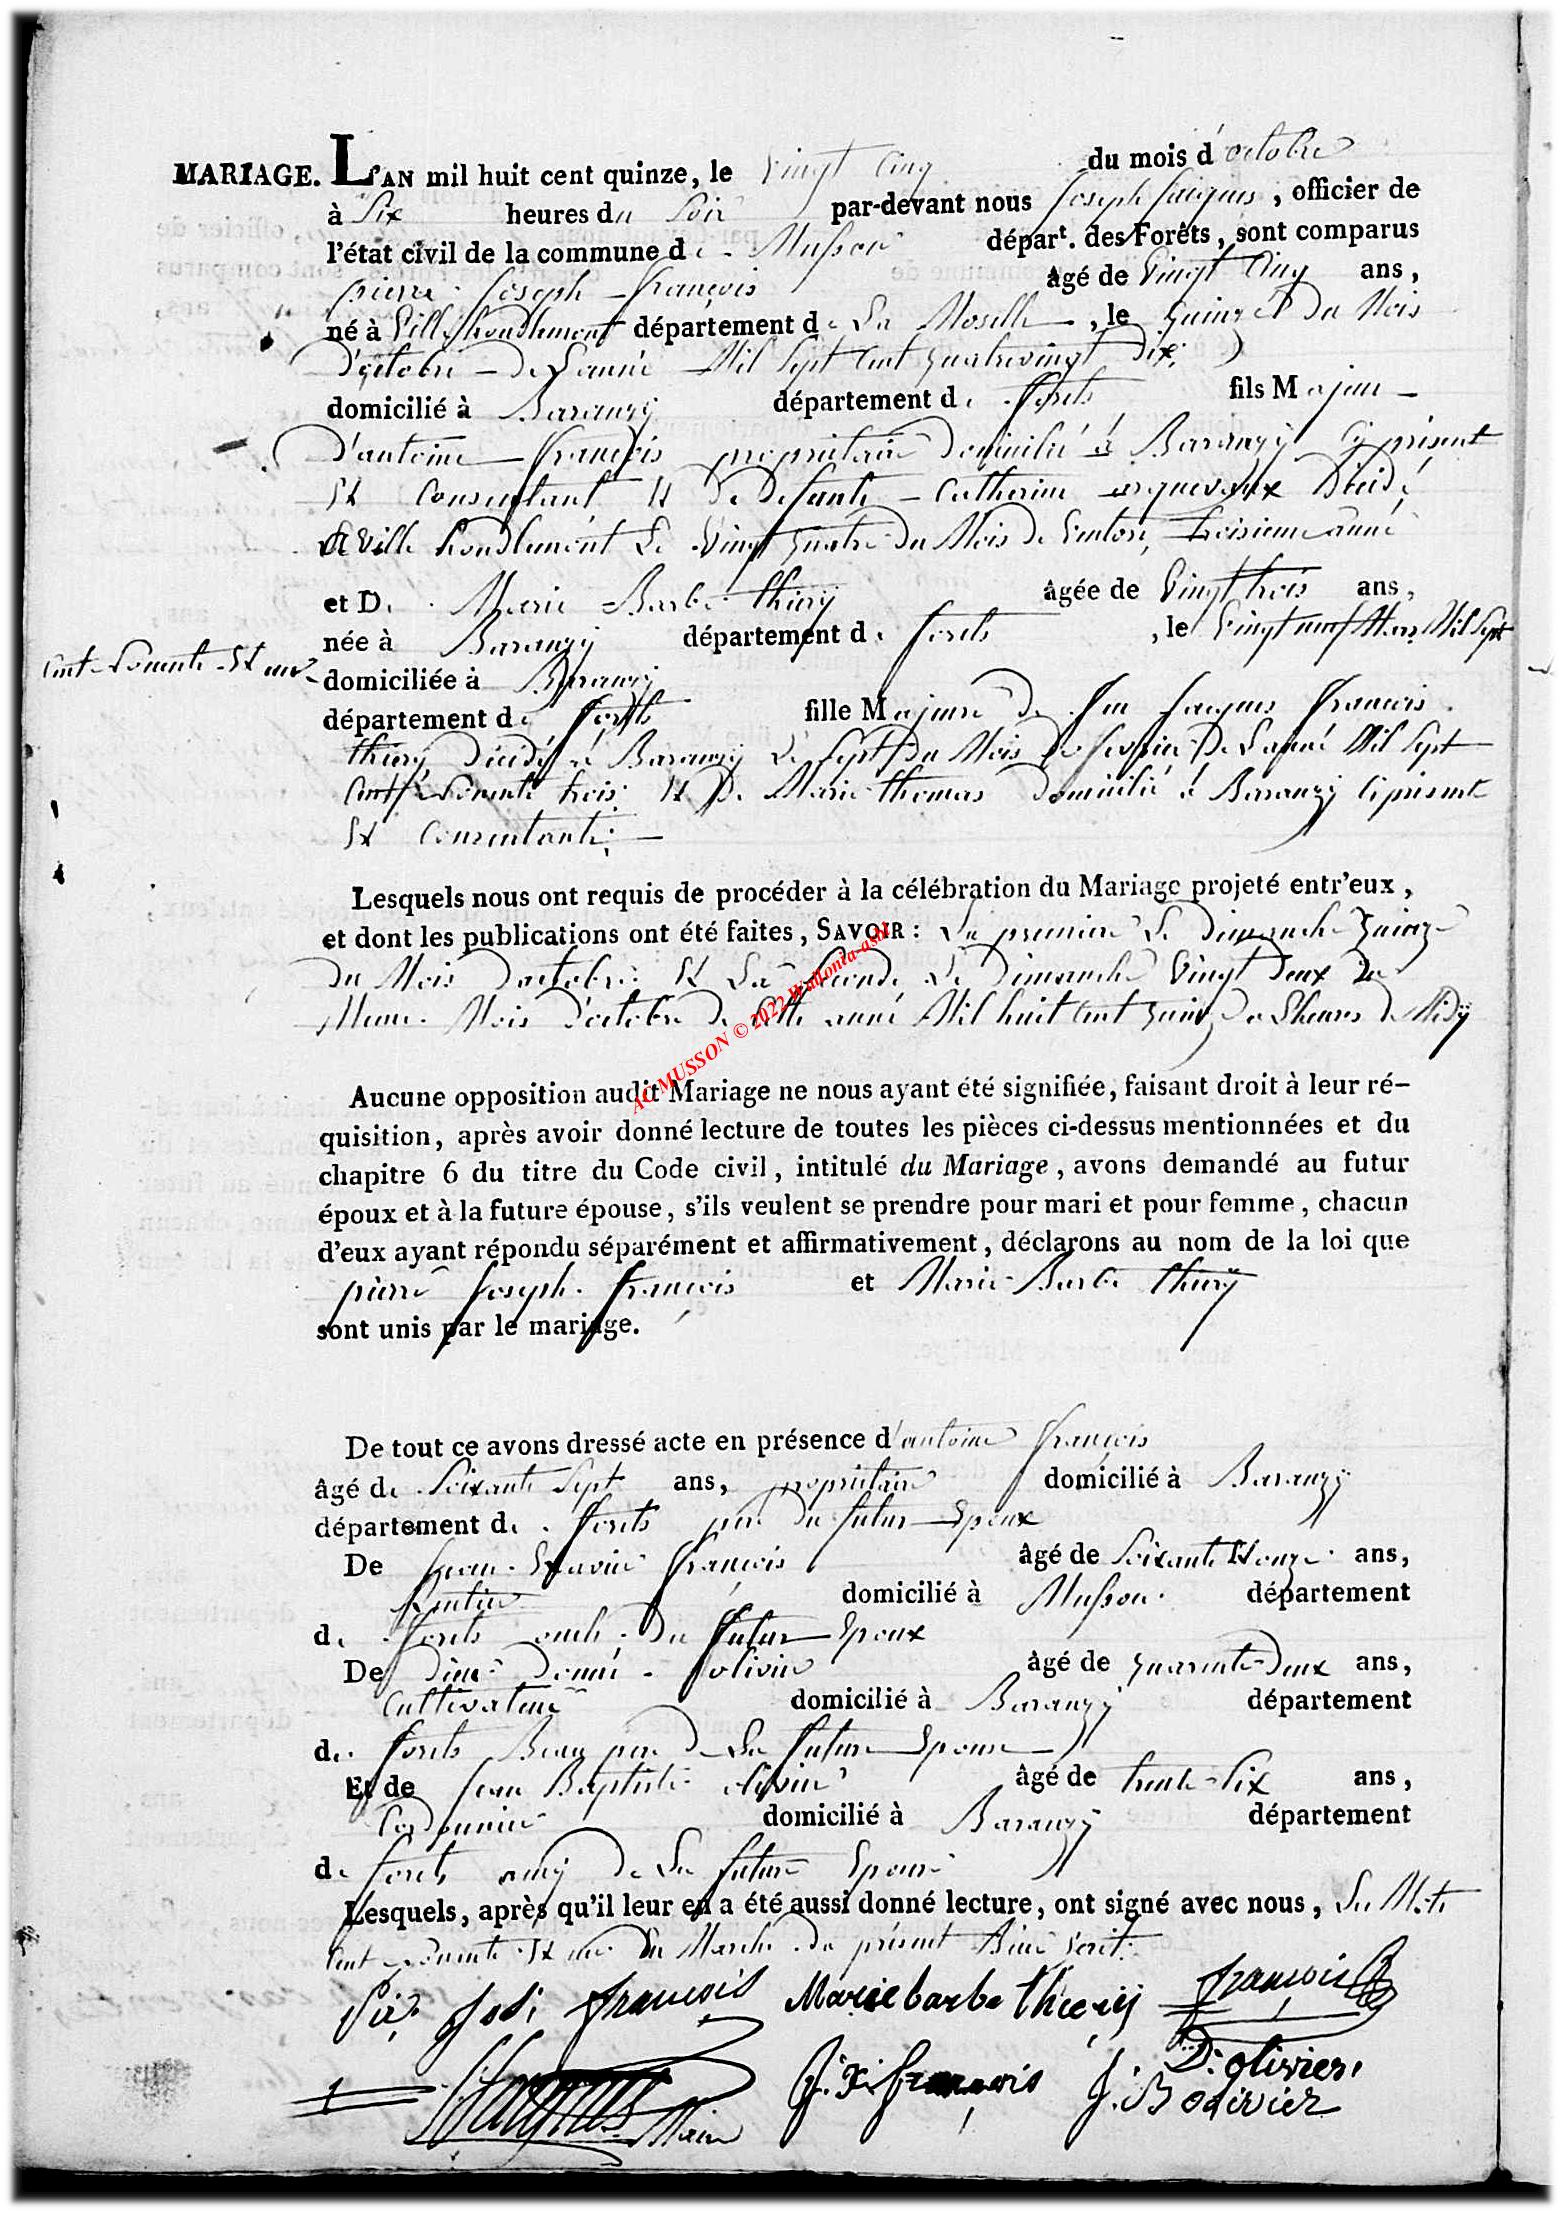 MARIAGE. L'AN mil huit cent quinze, le vingt cinq du mois d'octobre
à six heures du soir par-devant nous Joseph Jacques, officier de
l'état civil de la commune de Musson départ. des Forêts, sont comparus
pierre Joseph françois âgé de vingt cinq ans,
né à Ville houdlemont département de La Moselle, le quinze du Mois
d'octobre de L'année Mil Sept Cent quatrevingt dix
domicilié à Baranzy département de forets fils Majeur
d'antoine françois propriétaire domicilié à Baranzÿ cy présent
Et Consentant Et de defunte Catherine arquevaux Décidé
à Ville houdlemont Le Vingt quatre du Mois de Ventose, troisieme anné
et De Marie Barbe thiry âgée de Vingt trois ans,
née à Baranzy département de forets, le Vingt neuf Mars Mil Sept
Cent Nonante Et un
domiciliée à Baranzy
département de forets fille Majeure de feu Jacques francois
thiry décidé à Baranzy Le Sept du Mois de fevrier De L'anné Mil Sept
Cent Nonante trois Et De Marie thomas domicilié à Baranzy ci présente
Et Consentante
Lesquels nous ont requis de procéder à la célébration du Mariage projeté entr'eux,
et dont les publications ont été faites, SAVOIR : La premiere Le dimanche quinze
du Mois d'octobre Et La Seconde Le Dimanche Vingt deux du
Meme Mois d'octobre de cette anné Mil huit Cent quinze a Lheures de Midÿ
AC MUSSON © 2022 Wallonia-asbl
Aucune opposition audit Mariage ne nous ayant été signifiée, faisant droit à leur ré-
quisition, après avoir donné lecture de toutes les pièces ci-dessus mentionnées et du
chapitre 6 du titre du Code civil, intitulé du Mariage, avons demandé au futur
époux et à la future épouse, s'ils veulent se prendre pour mari et pour femme, chacun
d'eux ayant répondu séparément et affirmativement, déclarons au nom de la loi que
pierre Joseph françois et Marie Barbe thirÿ
sont unis par le mariage.
De tout ce avons dressé acte en présence d'antoine françois
âgé de Soixante Sept ans, propriétaire domicilié à Baranzÿ
département de forets pere du futur Epoux
De Jean françois âgé de Soixante Et onze ans,
Rentier domicilié à Musson département
de forets oncle du futur Epoux
De Dieu Donné olivier âgé de quarante Deux ans,
Cultivateur domicilié à Baranzÿ département
de forets Beau pere de La future Epouse
Et de Jean Baptiste olivier âgé de trente Six ans,
Cordonnier domicilié à Baranzÿ département
de forets amÿ de La future Epouse
Lesquels, après qu'il leur en a été aussi donné lecture, ont signé avec nous, Les Mots
Cent Nonante Et un En Marche du présent
Pie. Jos. françois Marie barbe thierij françois
D: olivier
J. X. françois J. B olivier
J Jacques Maire